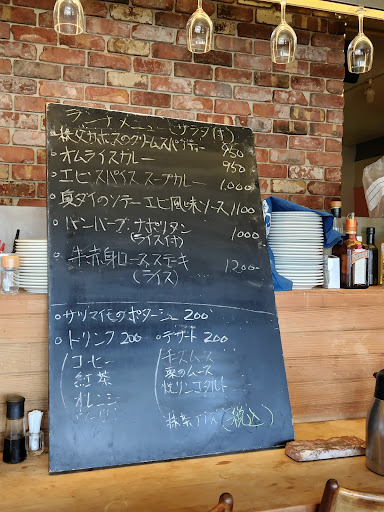 ランチメニュー(サラダ付)
秩父カボスのクリームスパゲティー 950
オムライスカレー 950
エビスパイススープカレー 1,000
真ダイのソテーエビ風味ソース 1100
ハンバーグ・ナポリタン 1000
(ライス付)
牛赤身ロースステーキ 1200-
(ライス)
サツマイモのポタージュ 200
ドリンク 200
コーヒー
紅茶
オレンジ
デザート 200
栗のムース
焼リンゴタルト
抹茶アイス (税込)